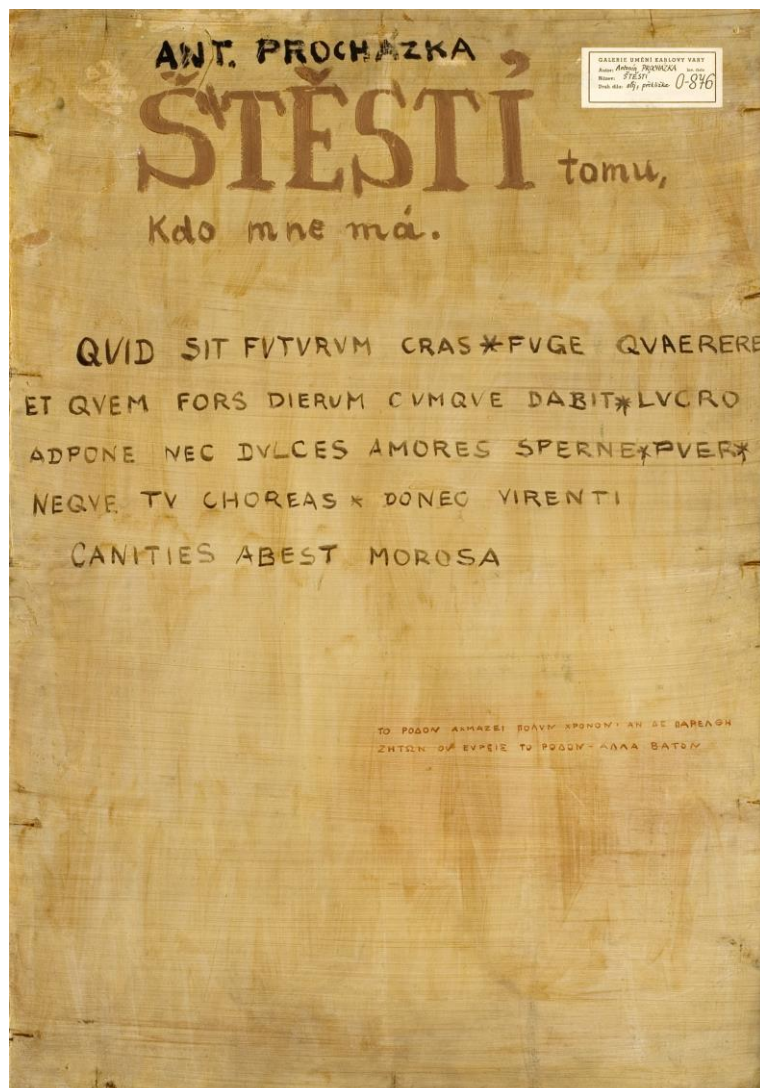 ANT. PROCHÁZKA
GALERIE UMĚNÍ KARLOVY VARY
Autor: Antonín PROCHÁZKA Inv. číslo
Název: ŠTĚSTÍ
Druh díla: olej, překližka O-876
ŠTĚSTÍ tomu,
Kdo mne má.
QUID SIT FVTVRVM CRAS*FVGE QVAERERE
ET QVEM FORS DIERUM CVMQVE DABIT*LVCRO
ADPONE NEC DVLCES AMORES SPERNE*PVER*
NEQVE TV CHOREAS * DONEC VIRENTI
CANITIES ABEST MOROSA
ΤΟ ΡΟΔΟΝ ΑΚΜΑΖΕΙ ΧΡΟΝΟΝ· ΑΝ ΔΕ ΠΑΡΕΛΘΗ
ΖΗΤΩΝ ΟΥ ΤΟ ΡΟΔΟΝ - ΑΛΛΑ ΒΑΤΟΝ